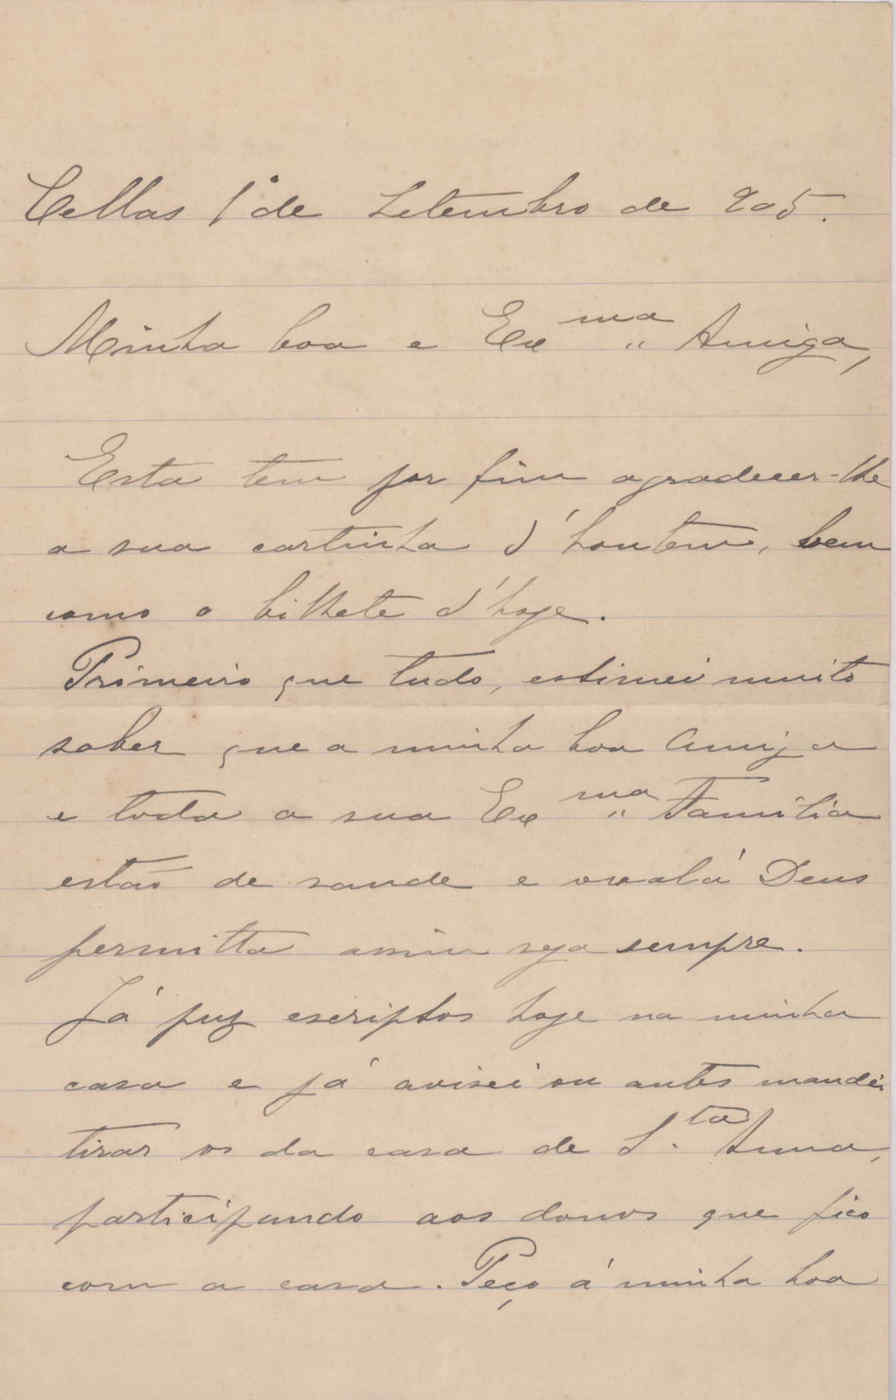 Cellas 1º de Setembro de 905.
Minha boa e Exma Amiga,
Esta tem por fim agradecer-lhe
a sua cartinha d'hontem, bem
como o bilhete d'hoje.
Primeiro que tudo, estimei muito
saber que a minha boa Amiga
e toda a sua Exma Familia
estão de saude e oxalá Deus
permitta assim seja sempre.
Já puz escriptos hoje na minha
casa e já avisei ou antes mandei
tirar os da casa de S.ta Anna,
participando aos donos que fico
com a casa. Peço á minha boa